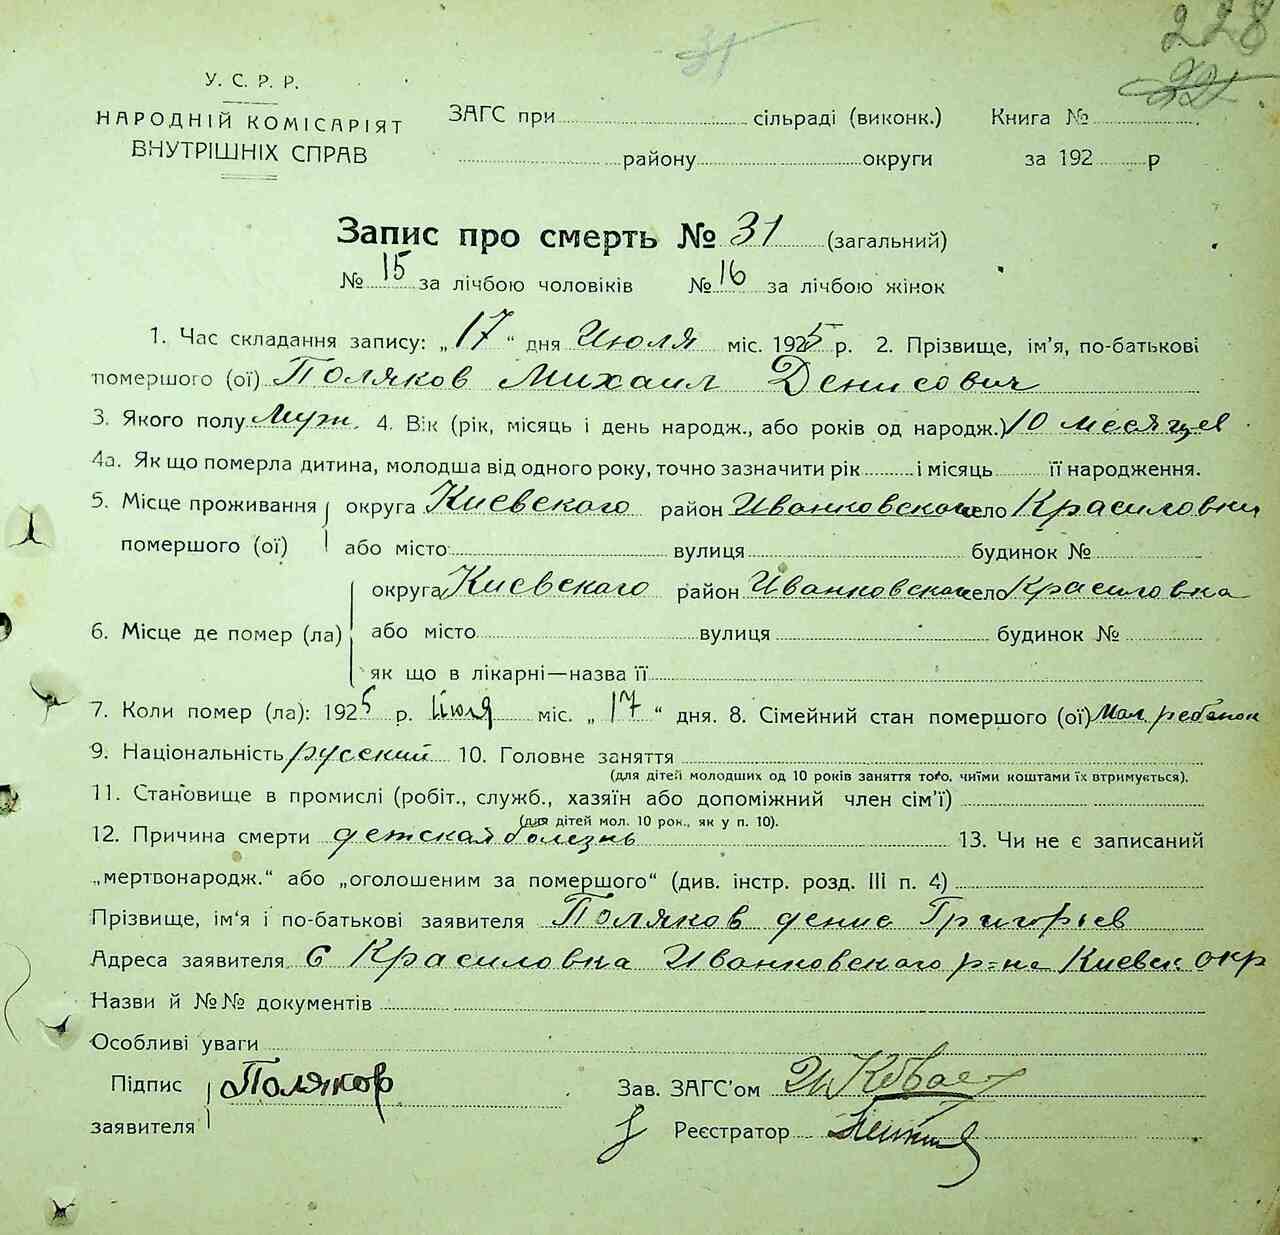 228
31
У. С. Р. Р.
НАРОДНІЙ КОМІСАРІЯТ
ВНУТРІШНІХ СПРАВ
ЗАГС при сільраді (виконк.) Книга №
району округи за 192 р
Запис про смерть № 31 (загальний)
№ 15 за лічбою чоловіків № 16 за лічбою жінок
1. Час складання запису: „17“ дня Июля міс. 1925 р. 2. Прізвище, ім'я, по-батькові
помершого (ої) Поляков Михаил Денисович
3. Якого полу Муж. 4. Вік (рік, місяць і день народж., або років од народж.) 10 месяцев
4а. Як що померла дитина, молодша від одного року, точно зазначити рік і місяць її народження.
5. Місце проживання округа Киевского район Иванковского село Красиловки
помершого (ої) або місто вулиця будинок №
округа Киевского район Иванковского село Красиловка
6. Місце де помер (ла) або місто вулиця будинок №
як що в лікарні—назва її
7. Коли помер (ла): 1925 р. Июля міс. „17“ дня. 8. Сімейний стан помершого (ої) Мал. ребенок
9. Національність русский 10. Головне заняття
(для дітей молодших од 10 років заняття того, чиїми коштами їх втримується).
11. Становище в промислі (робіт., служб., хазяїн або допоміжний член сім'ї)
(для дітей мол. 10 рок., як у п. 10).
12. Причина смерти детская болезнь 13. Чи не є записаний
„мертвонародж.“ або „оголошеним за помершого“ (див. інстр. розд. III п. 4)
Прізвище, ім'я і по-батькові заявителя Поляков денис Григорьев
Адреса заявителя С Красиловка Иванковского р-на Киевск окр
Назви й №№ документів
Особливі уваги
Підпис Поляков Зав. ЗАГС'ом
заявителя Реєстратор